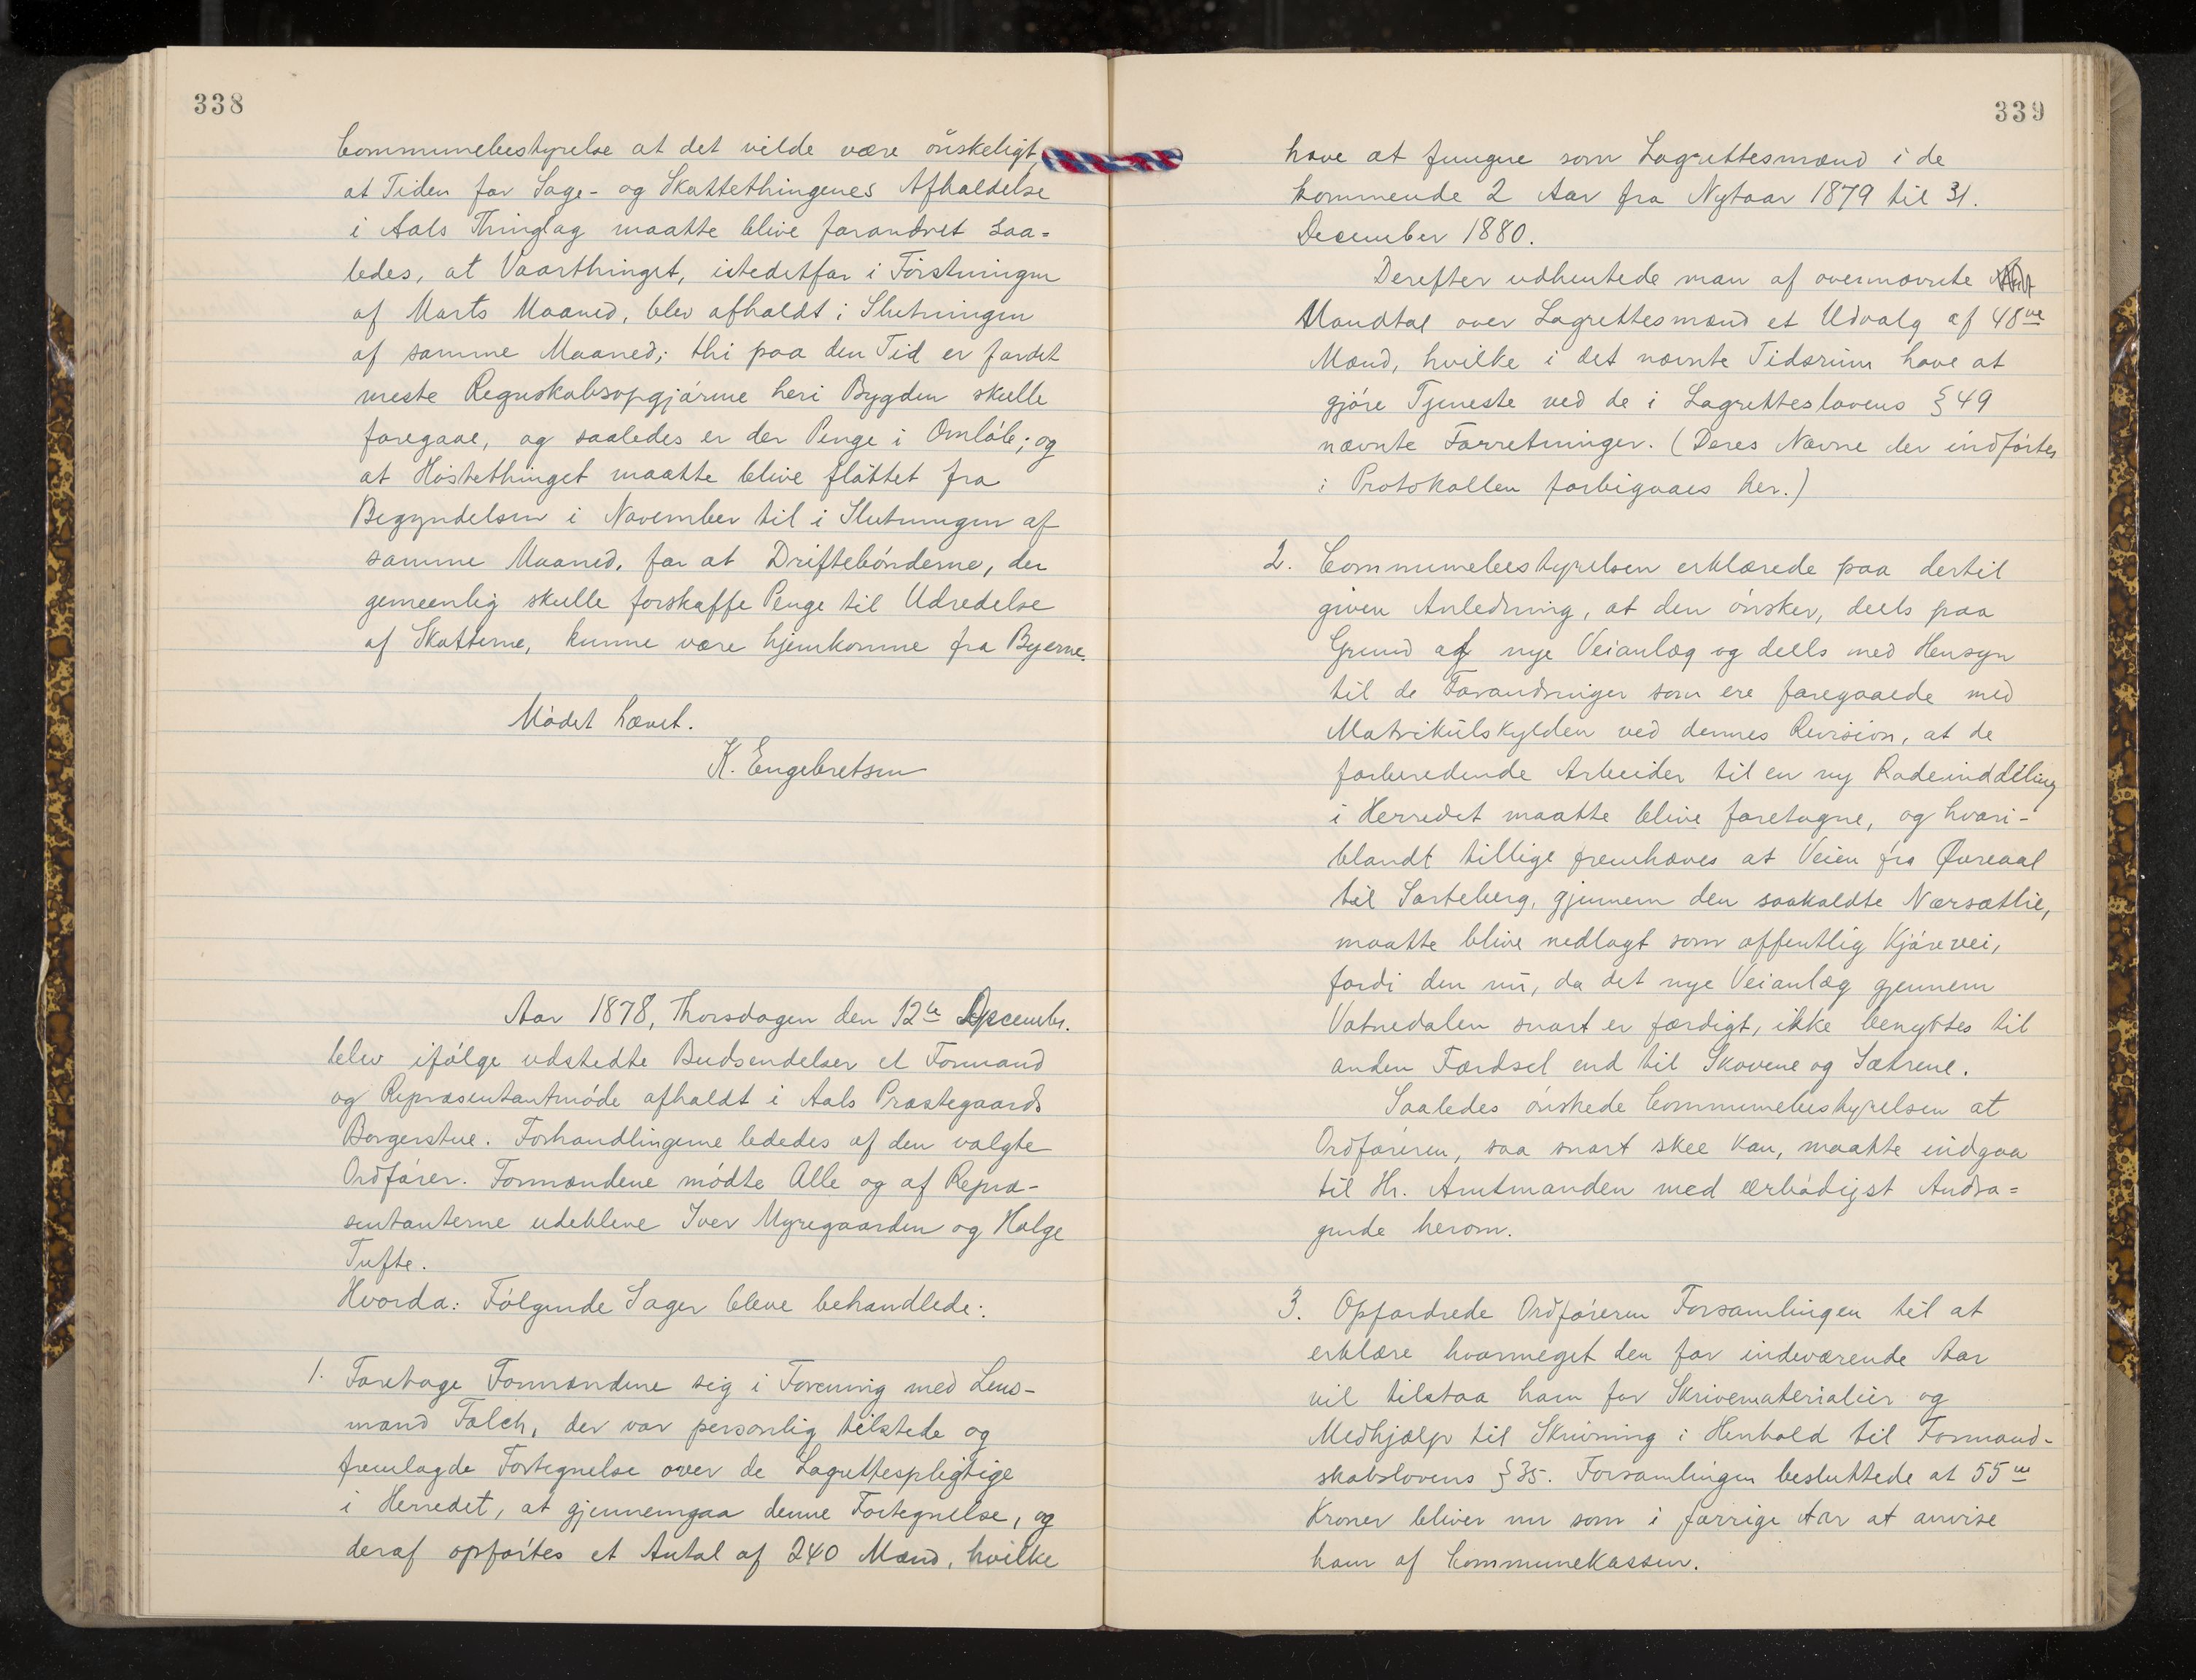 338
Communebestyrelse at det vilde være önskeligt,
at Tiden for Sage- og Skattethingenes Afholdelse
i Aals Thinglag maatte blive forandret saa=
ledes, at Vaarthinget, istedetfor i Förstningen
af Marts Maaned, blev afholdt i Slutningen
af samme Maaned; thi paa den Tid er fordet
meste Regnskabsopgjörene heri Bygden skulle
foregaae, og saaledes er der Penge i Omlöb; og
at Höstethinget maatte blive flöttet fra
Begyndelsen i November til i Slutningen af
samme Maaned, for at Driftebönderne, der
gemeenlig skulle forskaffe Penge til Udredelse
af Skatterne, kunne være hjemkomne fra Byerne.
Mödet hævet.
K. Engebretsen
Aar 1878, Thorsdagen den 12te Decembr.
blev ifölge udstedte Budsendelser et Formand
og Repræsentantmöde afholdt i Aals Præstegaards
Borgerstue. Forhandlingerne lededes af den valgte
Ordförer. Formændene mödte Alle og af Repræ-
sentanterne udebleve Iver Myregaarden og Holge
Tufte.
Hvorda: Fölgende Sager bleve behandlede:
1. Foretoge Formændene sig i Forening med Lens-
mand Falch, der var personlig tilstede og
fremlagde Fortegnelse over de Lagrettespligtige
i Herredet, at gjennemgaa denne Fortegnelse, og
deraf opförtes et Antal af 240 Mænd, hvilke
339
have at fungere som Lagrettesmænd i de
kommende 2 Aar fra Nytaar 1879 til 31.
December 1880.
Derefter udhentede man af ovennævnte
Mandtal over Lagrettesmænd et Udvalg af 48ve
Mænd, hvilke i det nævnte Tidsrum have at
gjöre Tjeneste ved de i Lagretteslovens § 49
nævnte Forretninger. (Deres Navne der indförtes
i Protokollen forbigaaes her.)
2. Communebestyrelsen erklærede paa dertil
given Anledning, at den önsker, deels paa
Grund af nye Veianlæg og deels med Hensyn
til de Forandringer som ere foregaaede med
Matrikülskylden ved dennes Revision, at de
forberedende Arbeider til en ny Rodeinddeling
i Herredet maatte blive foretagne, og hvori-
blandt tillige fremhæves at Veien fra Øvreaal
til Sorteberg, gjennem den saakaldte Næræstlie,
maatte blive nedlagt som offentlig Kjörevei,
fordi den nü, da det nye Veianlæg gjennem
Votnedalen snart er færdigt, ikke benyttes til
anden Færdsel end til Skovene og Sætrene.
Saaledes önskede Communebestyrelsen at
Ordföreren, saa snart skee kan, maatte indgaa
til Hr. Amtmanden med ærbödigst Andra=
gende herom.
3. Opfordrede Ordföreren Forsamlingen til at
erklære hvormeget den for indeværende Aar
vil tilstaa ham for Skrivematerialier og
Medhjælp til Skrivning i Henhold til Formand-
skabslovens § 35. Forsamlingen besluttede at 55
Kroner bliver nu som i forrige Aar at anvise
ham af Communekassen.